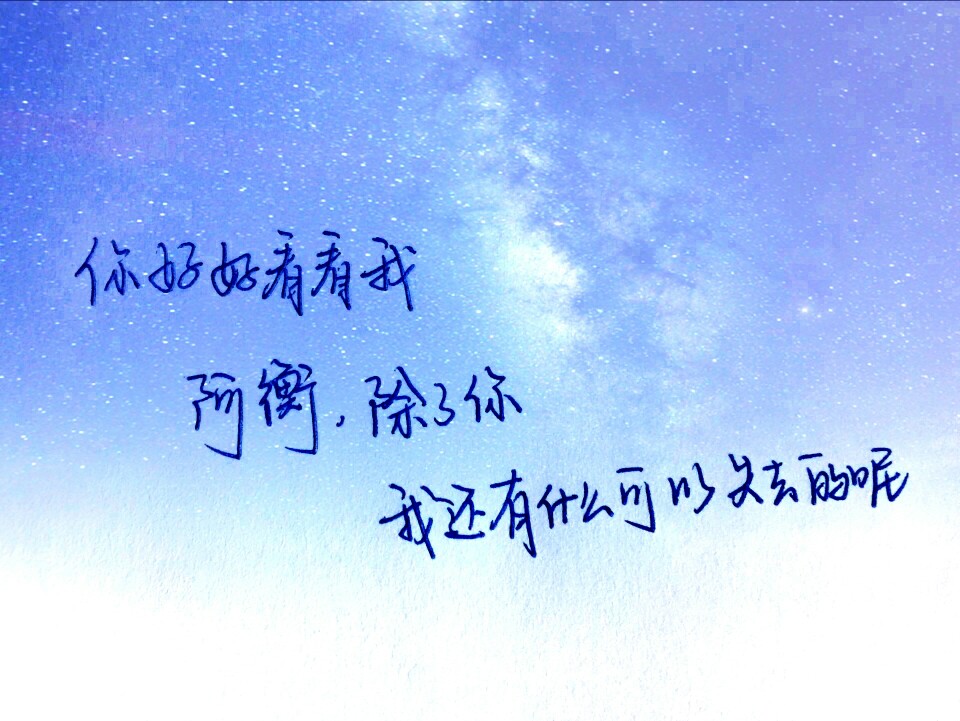 你好好看看我
阿衡，除了你
我还有什么可以失去的呢